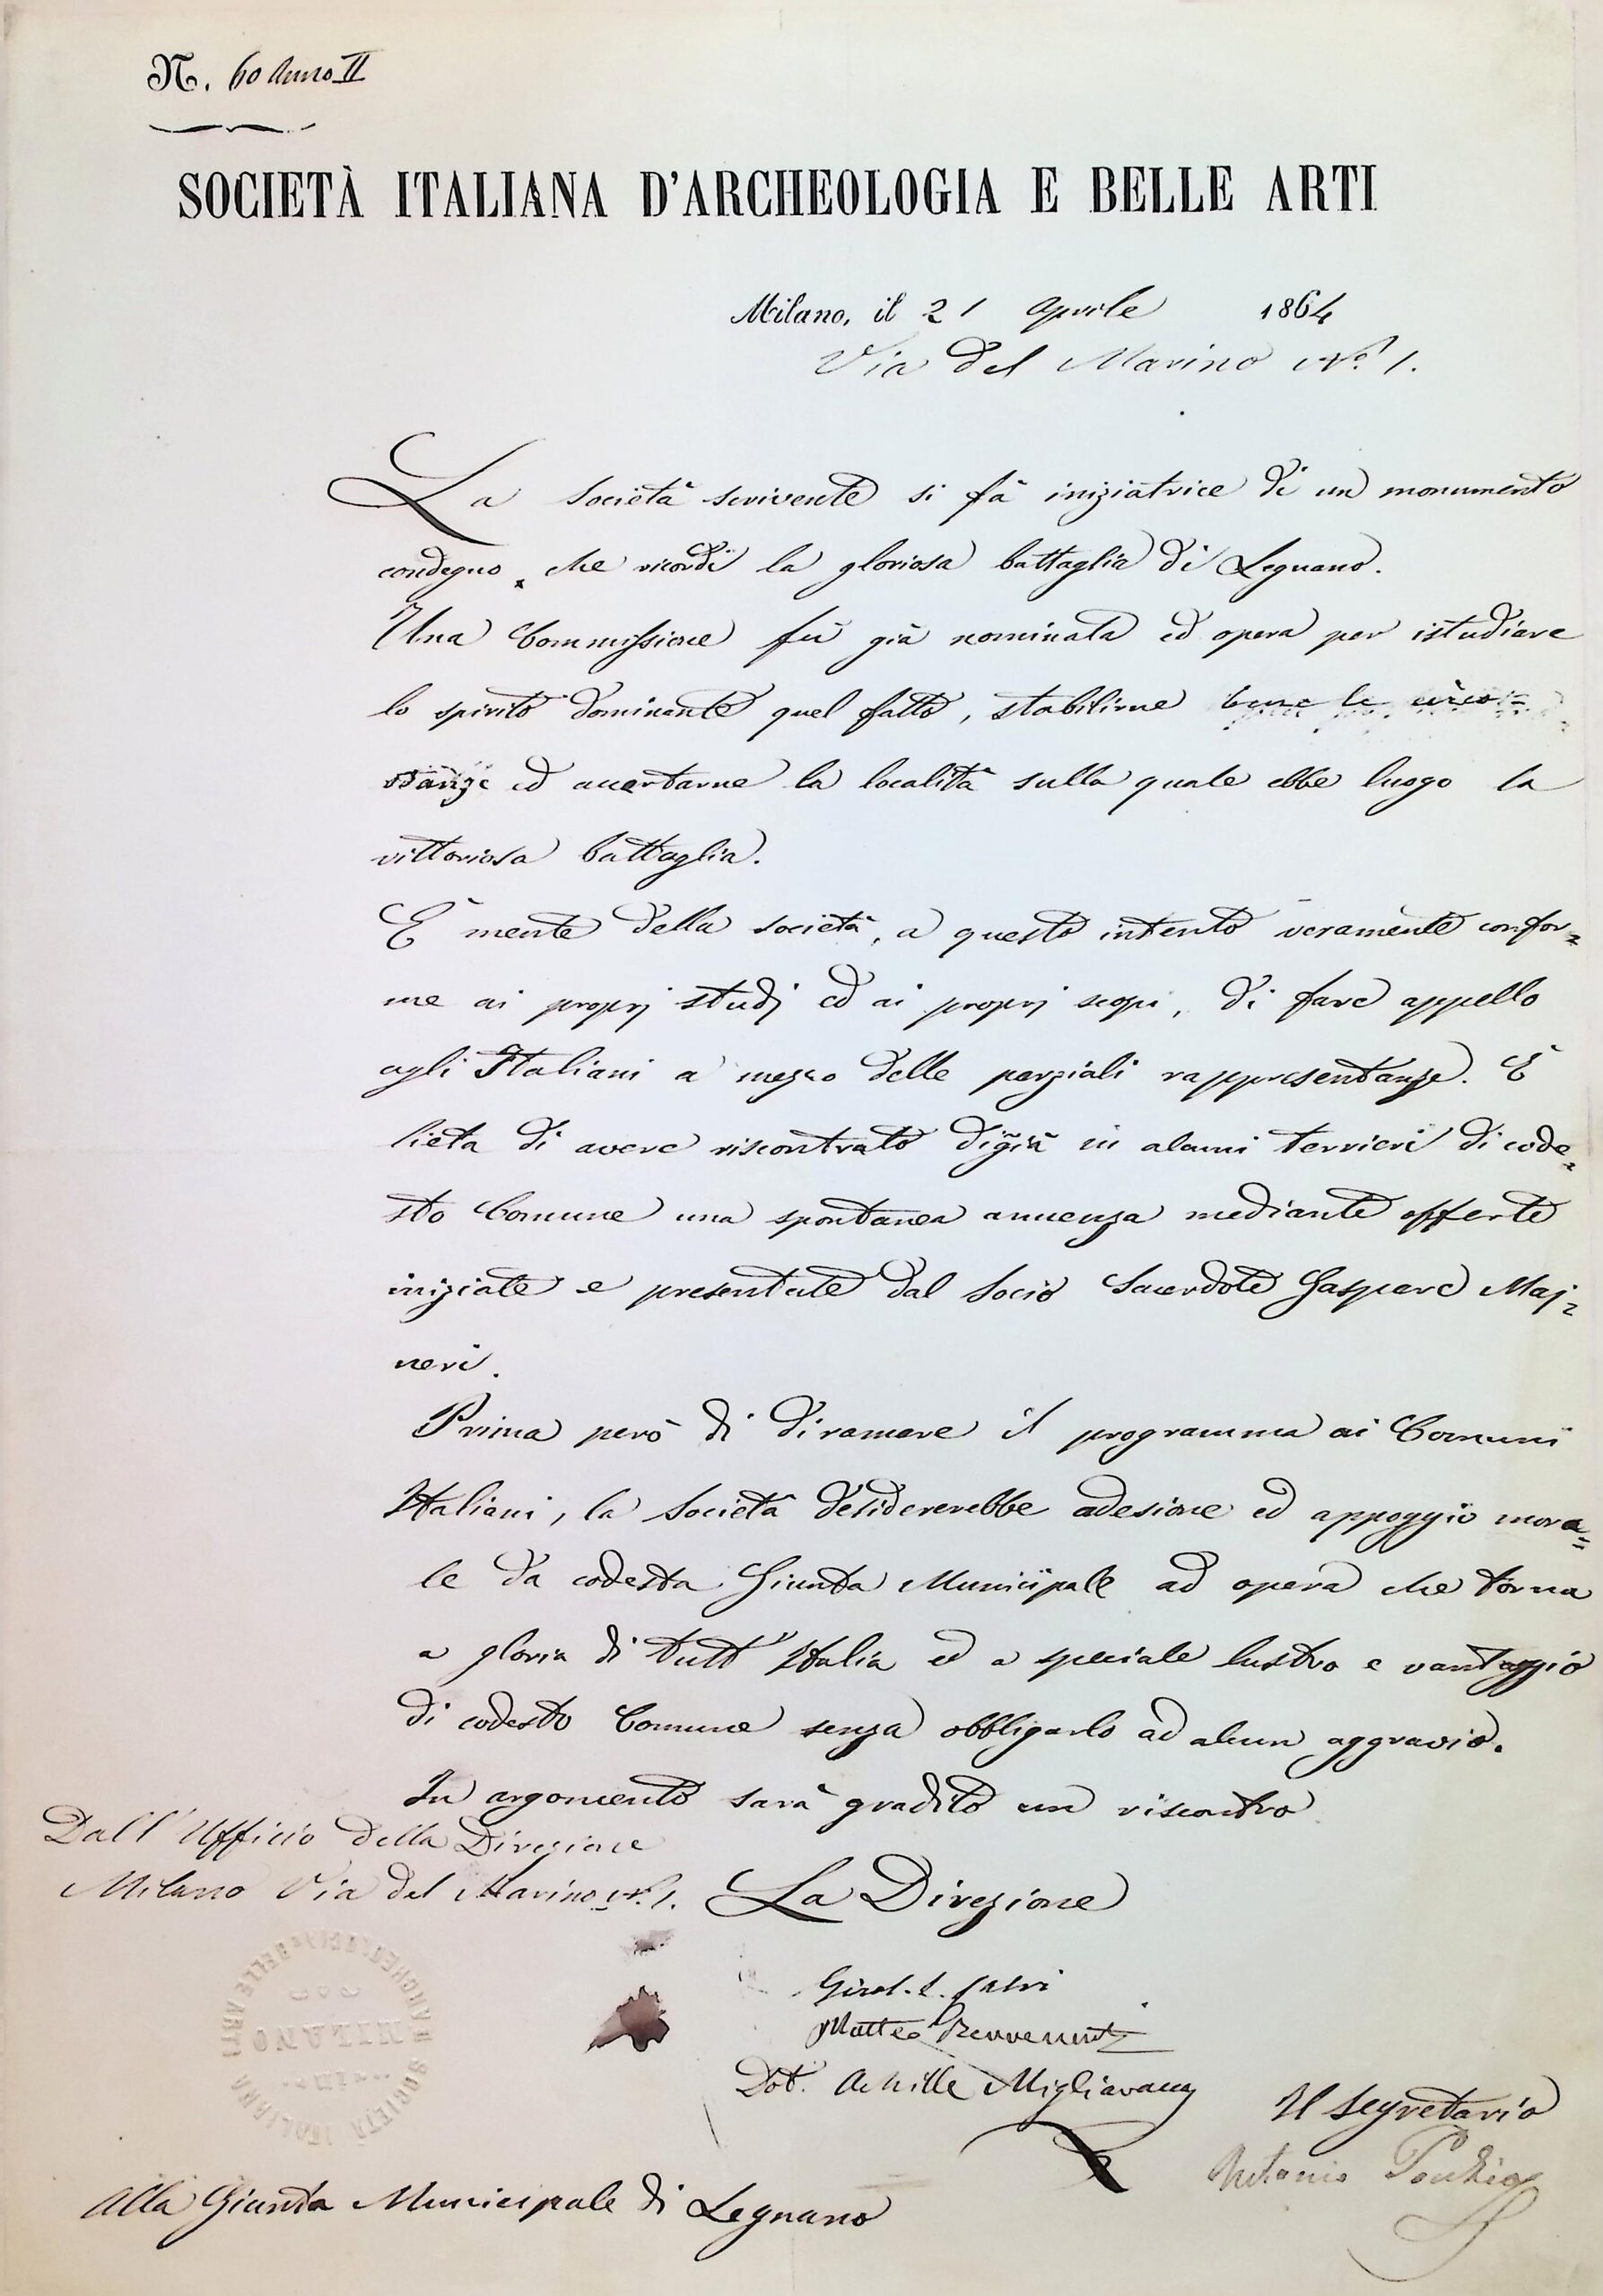 N. 60 Anno II
SOCIETÀ ITALIANA D'ARCHEOLOGIA E BELLE ARTI
Milano, il 21 Aprile 1864
Via del Marino Nº 1.
La Società scrivente si fà iniziatrice di un monumento
condegno, che ricordi la gloriosa battaglia di Legnano.
Una Commissione fù già nominata ed opera per istudiare
lo spirito dominante quel fatto, stabilirne bene le circo=
stanze ed accertarne la località sulla quale ebbe luogo la
vittoriosa battaglia.
È mente della società, a questo intento veramente confor=
me ai proprj studj ed ai proprj scopi, di fare appello
agli Italiani a mezzo delle parziali rappresentanze. È
lieta di avere riscontrato digià in alcuni terrieri di code=
sto Comune una spontanea annuenza mediante offerte
iniziate e presentate dal Socio Sacerdote Gaspare Maj=
neri.
Prima però di diramare il programma ai Comuni
Italiani, la Società desidererebbe adesione ed appoggio mora=
le da codesta Giunta Municipale ad opera che torna
a gloria di tutt'Italia ed a speciale lustro e vantaggio
di codesto Comune senza obbligarlo ad alcun aggravio.
In argomento sarà gradito un riscontro
Dall'Ufficio della Direzione
Milano Via del Marino N. 1.
La Direzione
SOCIETÀ ITALIANA D'ARCHEOLOGIA E BELLE ARTI
MILANO
Girol. L. Calvi
Matteo Benvenuti
Dot. Achille Migliavacca
Il Segretario
Antonio
Alla Giunta Municipale di Legnano